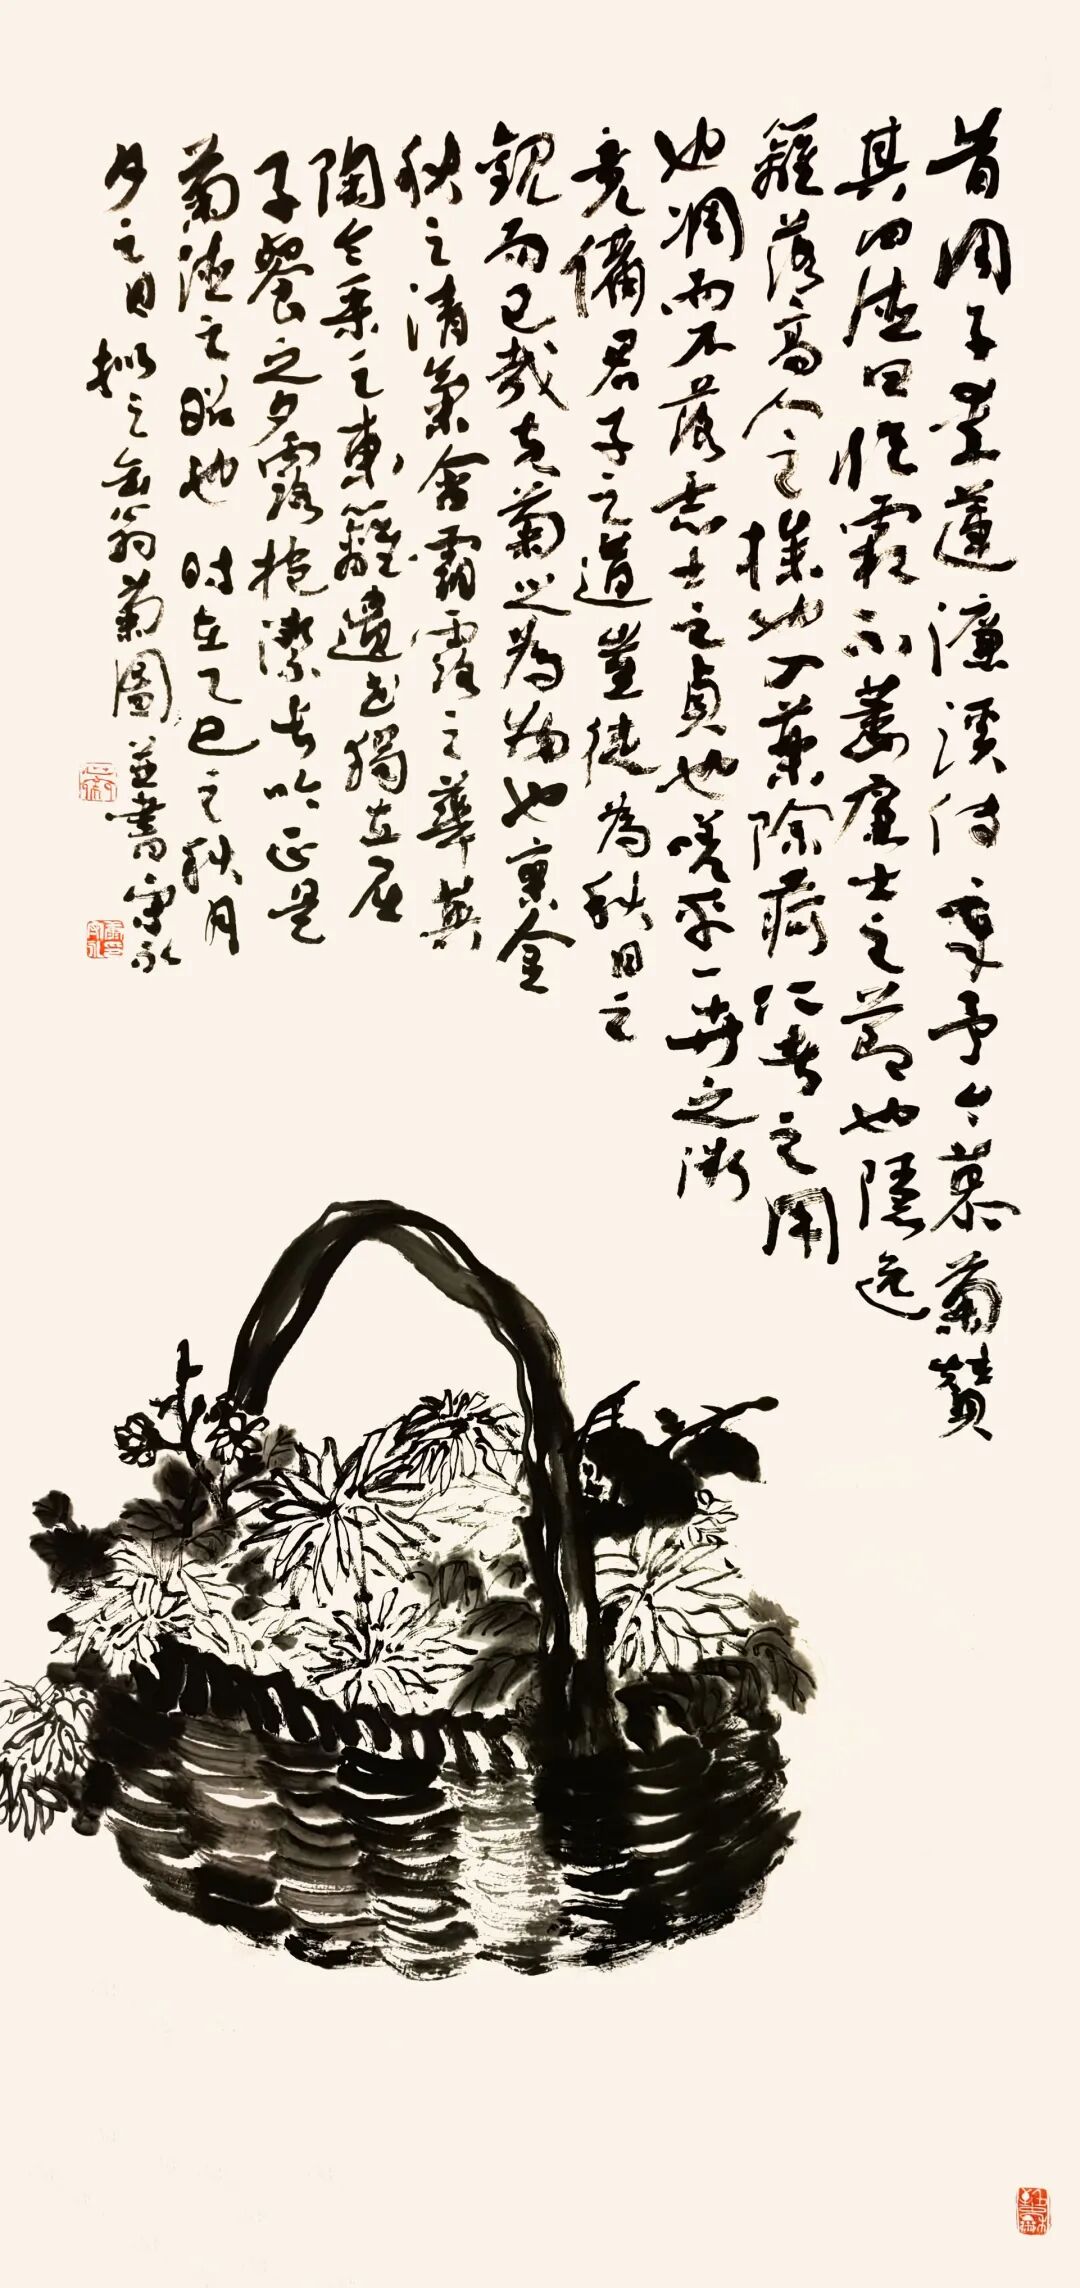 昔周子爱莲濂溪侍 予今慕菊赞
其四德曰临霜不萎虚士之节也隐逸
篱落高人之操也入药除疴仁者之用
也凋而不落志士之贞也嗟乎一卉之微
竟备君子之道岂徒为秋日之
观而已哉夫菊之为物也禀金
秋之清气含霜露之华英
陶令采之东篱遗世独立屈
子餐之夕露抱洁长吟正是
菊德之昭也 时在乙巳之秋月
夕之日拟之缶翁菊图并书宗永